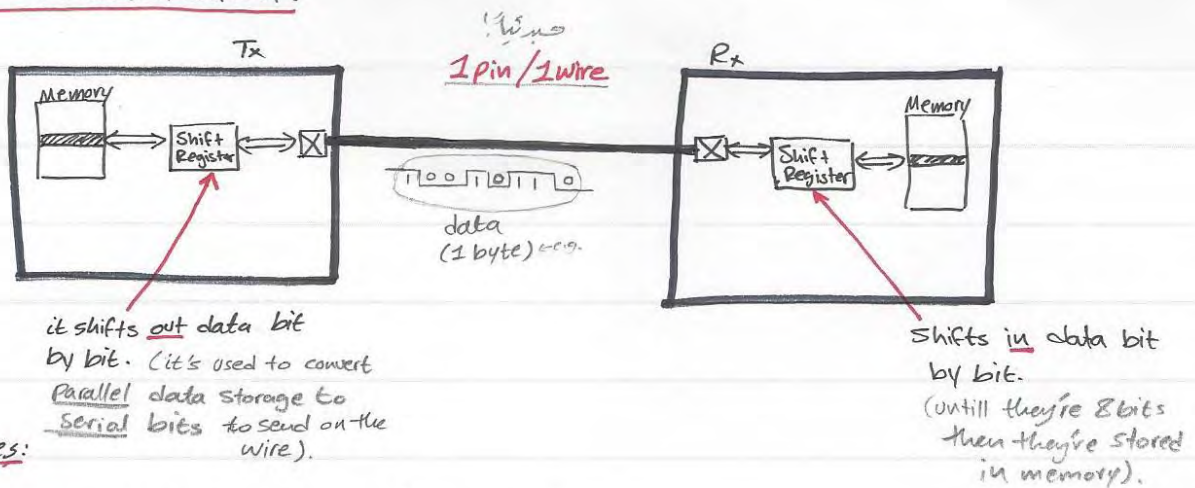 Tx
مبدئياً!
1 pin / 1 wire
Rx
Memory
Shift
Register
1 0 0 1 0 1 1 0
data
(1 byte) ← e.g.
Shift
Register
Memory
it shifts out data bit
by bit. (it's used to convert
Parallel data storage to
serial bits to send on the
wire).
Shifts in data bit
by bit.
(untill they're 8 bits
then they're stored
in memory).